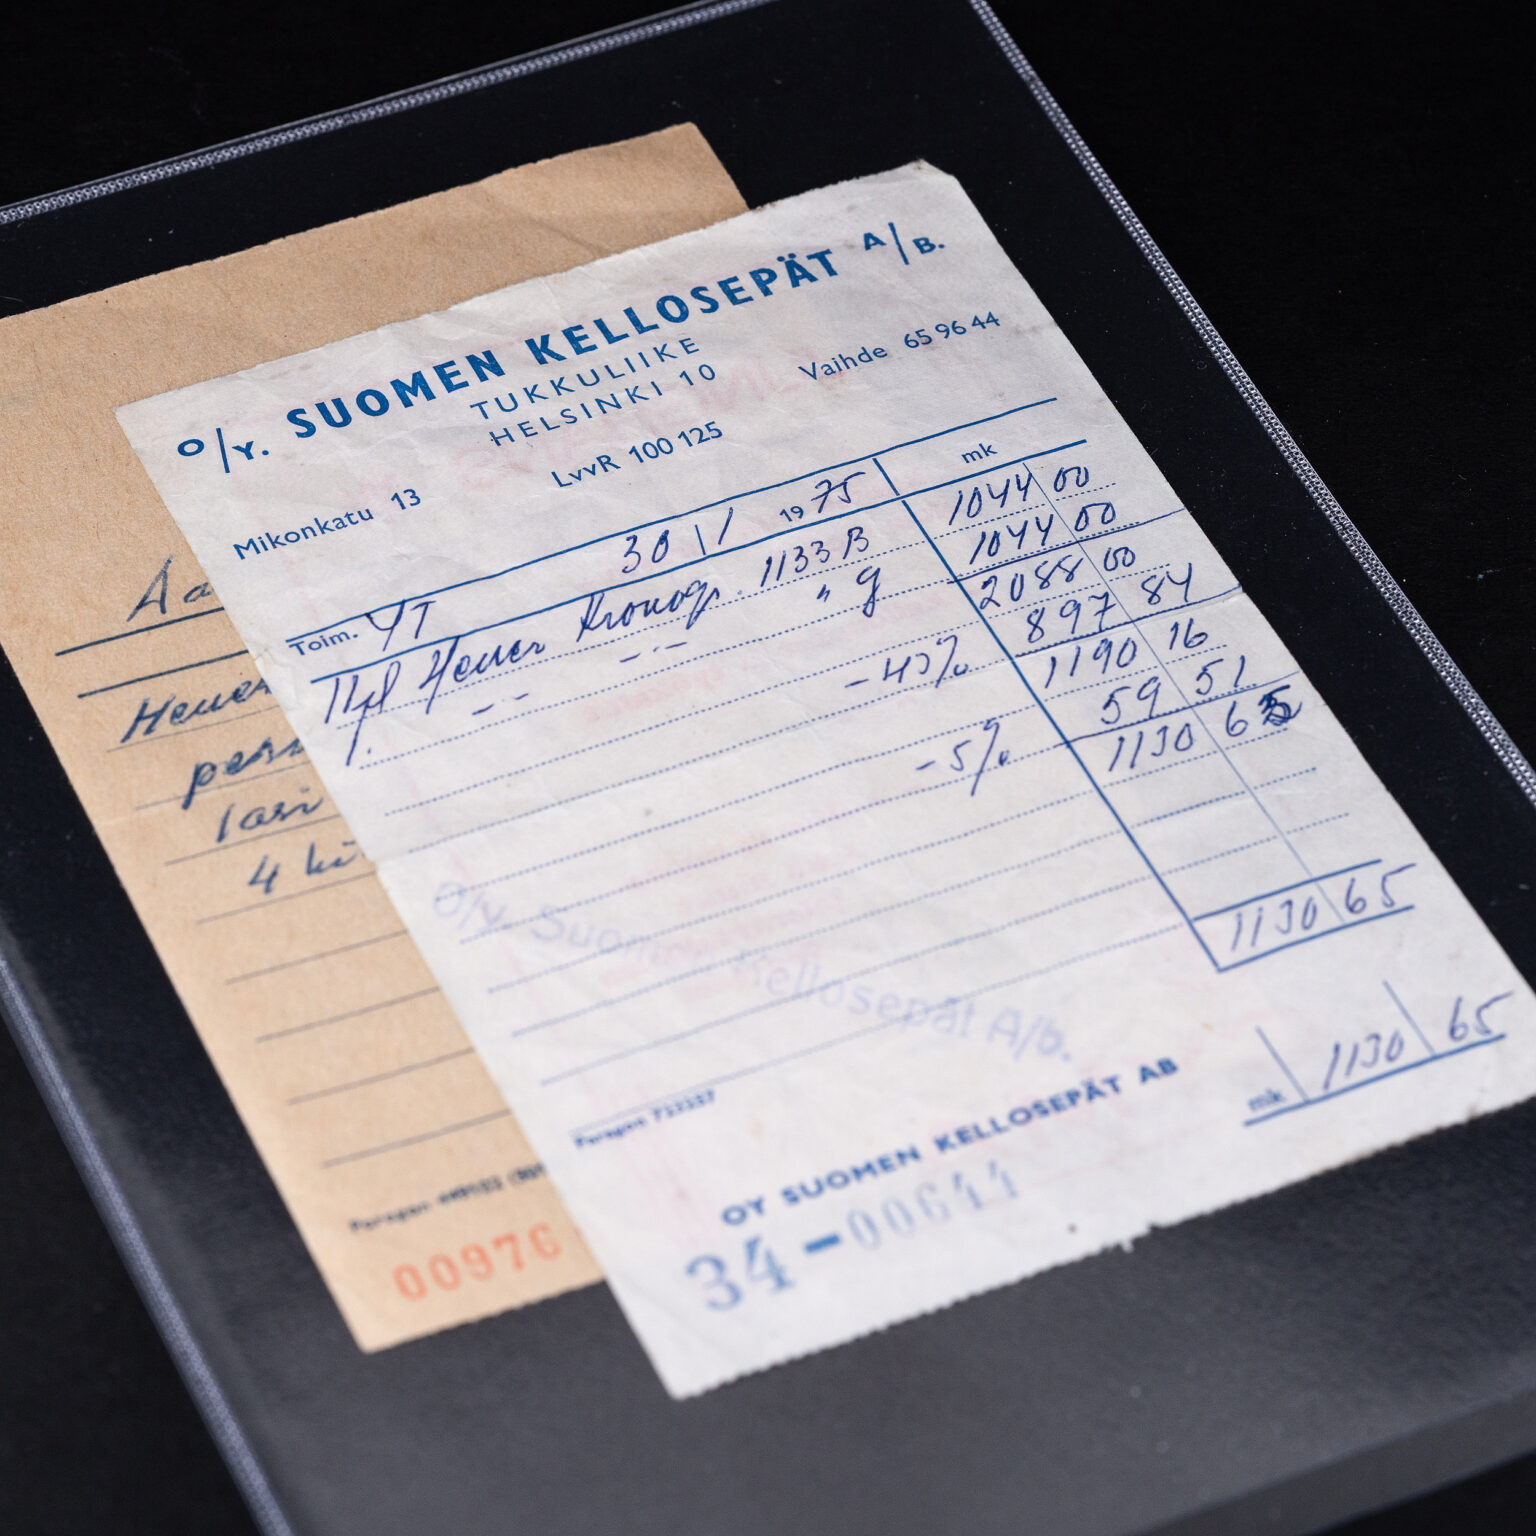 O/Y. SUOMEN KELLOSEPÄT A/B.
TUKKULIIKE
HELSINKI 10
Mikonkatu 13 LvvR 100 125 Vaihde 65 96 44
30 | 1 1975 mk
Toim. YT
1 kpl Heuer Kronogr. 1133 B 1044 00
1 " -"- -"- " g 1044 00
2088 00
-43% 897 84
1190 16
-5% 59 51
1130 65
1130 65
O/y. Suomen Kellosepät A/b.
mk 1130 65
OY SUOMEN KELLOSEPÄT AB
34-00644
Heuer
lasi
4
00976